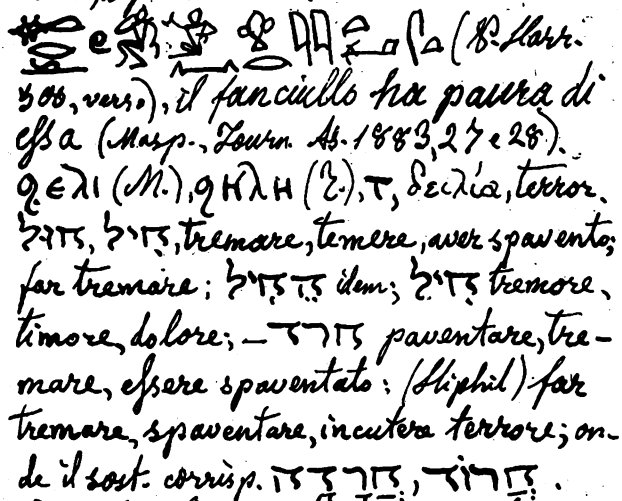 (P. Harr.
500, verso), il fanciullo ha paura di
essa (Masp., Journ. As. 1883, 27 e 28).
ϩⲉⲗⲓ (M.), ϩⲏⲗⲏ , ⲧ, δειλία, terror.
חול, חִיל, tremare, temere, aver spavento;
far tremare; הֵחִיל idem; חִיל tremore,
timore, dolore; — חרד paventare, tre-
mare, essere spaventato: (Hiphil) far
tremare, spaventare, incutere terrore; on-
de il sost. corrisp. חרדה, חֲרוֹד.